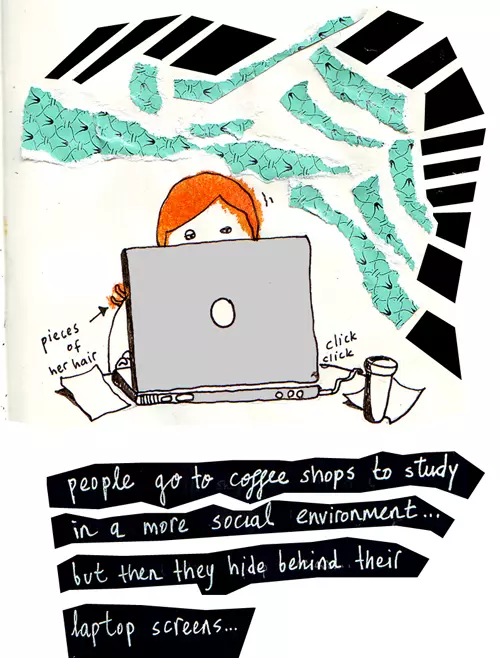 pieces
of
her hair
click
click
people go to coffee shops to study
in a more social environment...
but then they hide behind their
laptop screens...